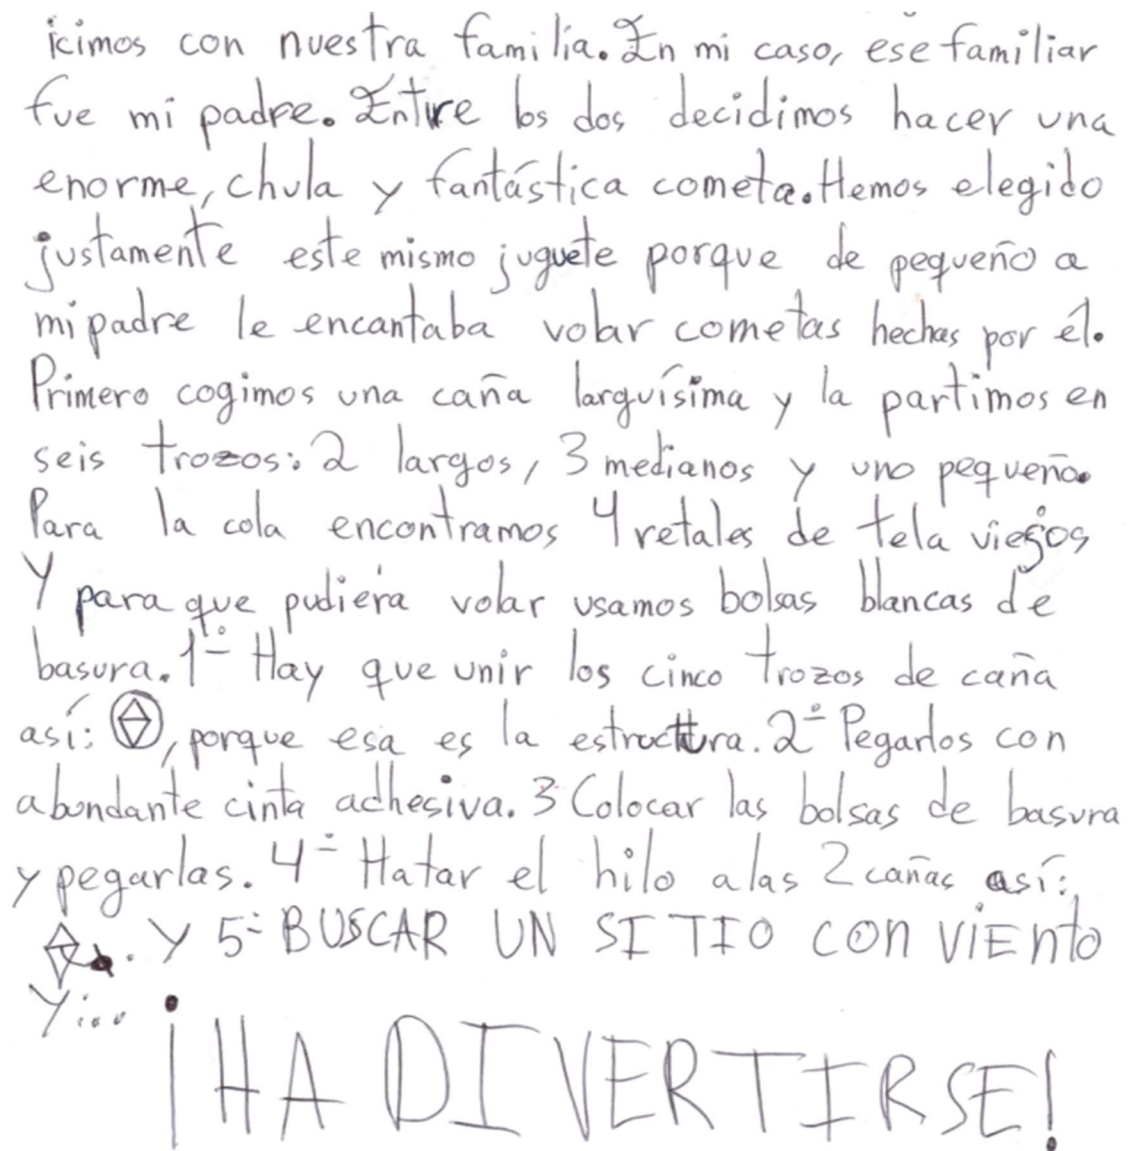 icimos con nuestra familia. En mi caso, ese familiar
fue mi padre. Entre los dos decidimos hacer una
enorme, chula y fantástica cometa. Hemos elegido
justamente este mismo juguete porque de pequeño a
mi padre le encantaba volar cometas hechas por él.
Primero cogimos una caña larguísima y la partimos en
seis trozos: 2 largos, 3 medianos y uno pequeño.
Para la cola encontramos 4 retales de tela viejos
Y para que pudiera volar usamos bolsas blancas de
basura. 1º Hay que unir los cinco trozos de caña
así: , porque esa es la estructura. 2º Pegarlos con
abundante cinta adhesiva. 3 Colocar las bolsas de basura
y pegarlas. 4º Hatar el hilo a las 2 cañas así:
. Y 5º BUSCAR UN SITIO CON VIENTO
Y...
¡HA DIVERTIRSE!